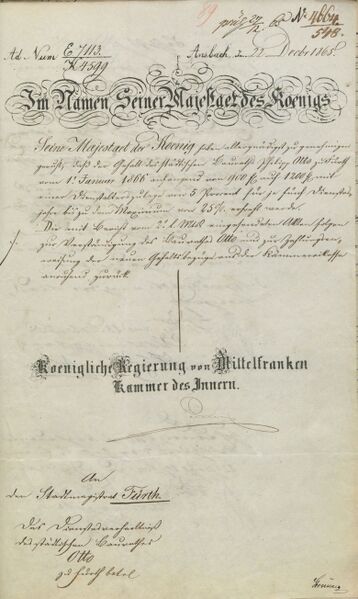 89
präs 27/12 65
No 4664
548.
Ad Num E 7113.
K 4549
Ansbach, den 22 Decbr 1865.
Im Namen Seiner Majestaet des Koenigs
Seine Majestaet der Koenig haben allergnädigst zu genehmigen
geruht, daß der Gehalt des städtischen Bauraths Philipp Otto zu Fürth
vom 1. Januar 1866 anfangend von 900 fl. auf 1200 fl. mit
einer Dienstalterszulage von 5 Percent für je fünf Dienstes-
jahre bis zu dem Maximum von 25% erhöht werde.
Die mit Bericht vom 2. l. Mts. eingesendeten Akten folgen
zur Verständigung des Baurathes Otto und zur Zahlungsan-
weisung des neuen Gehaltsbezugs an den Kämmereikasse
anruhend zurück.
Koenigliche Regierung von Mittelfranken
Kammer des Innern.
An
den Stadtmagistrat Fürth.
Das Dienstesverhältniß
des städtischen Baurathes
Otto
zu Fürth betr.